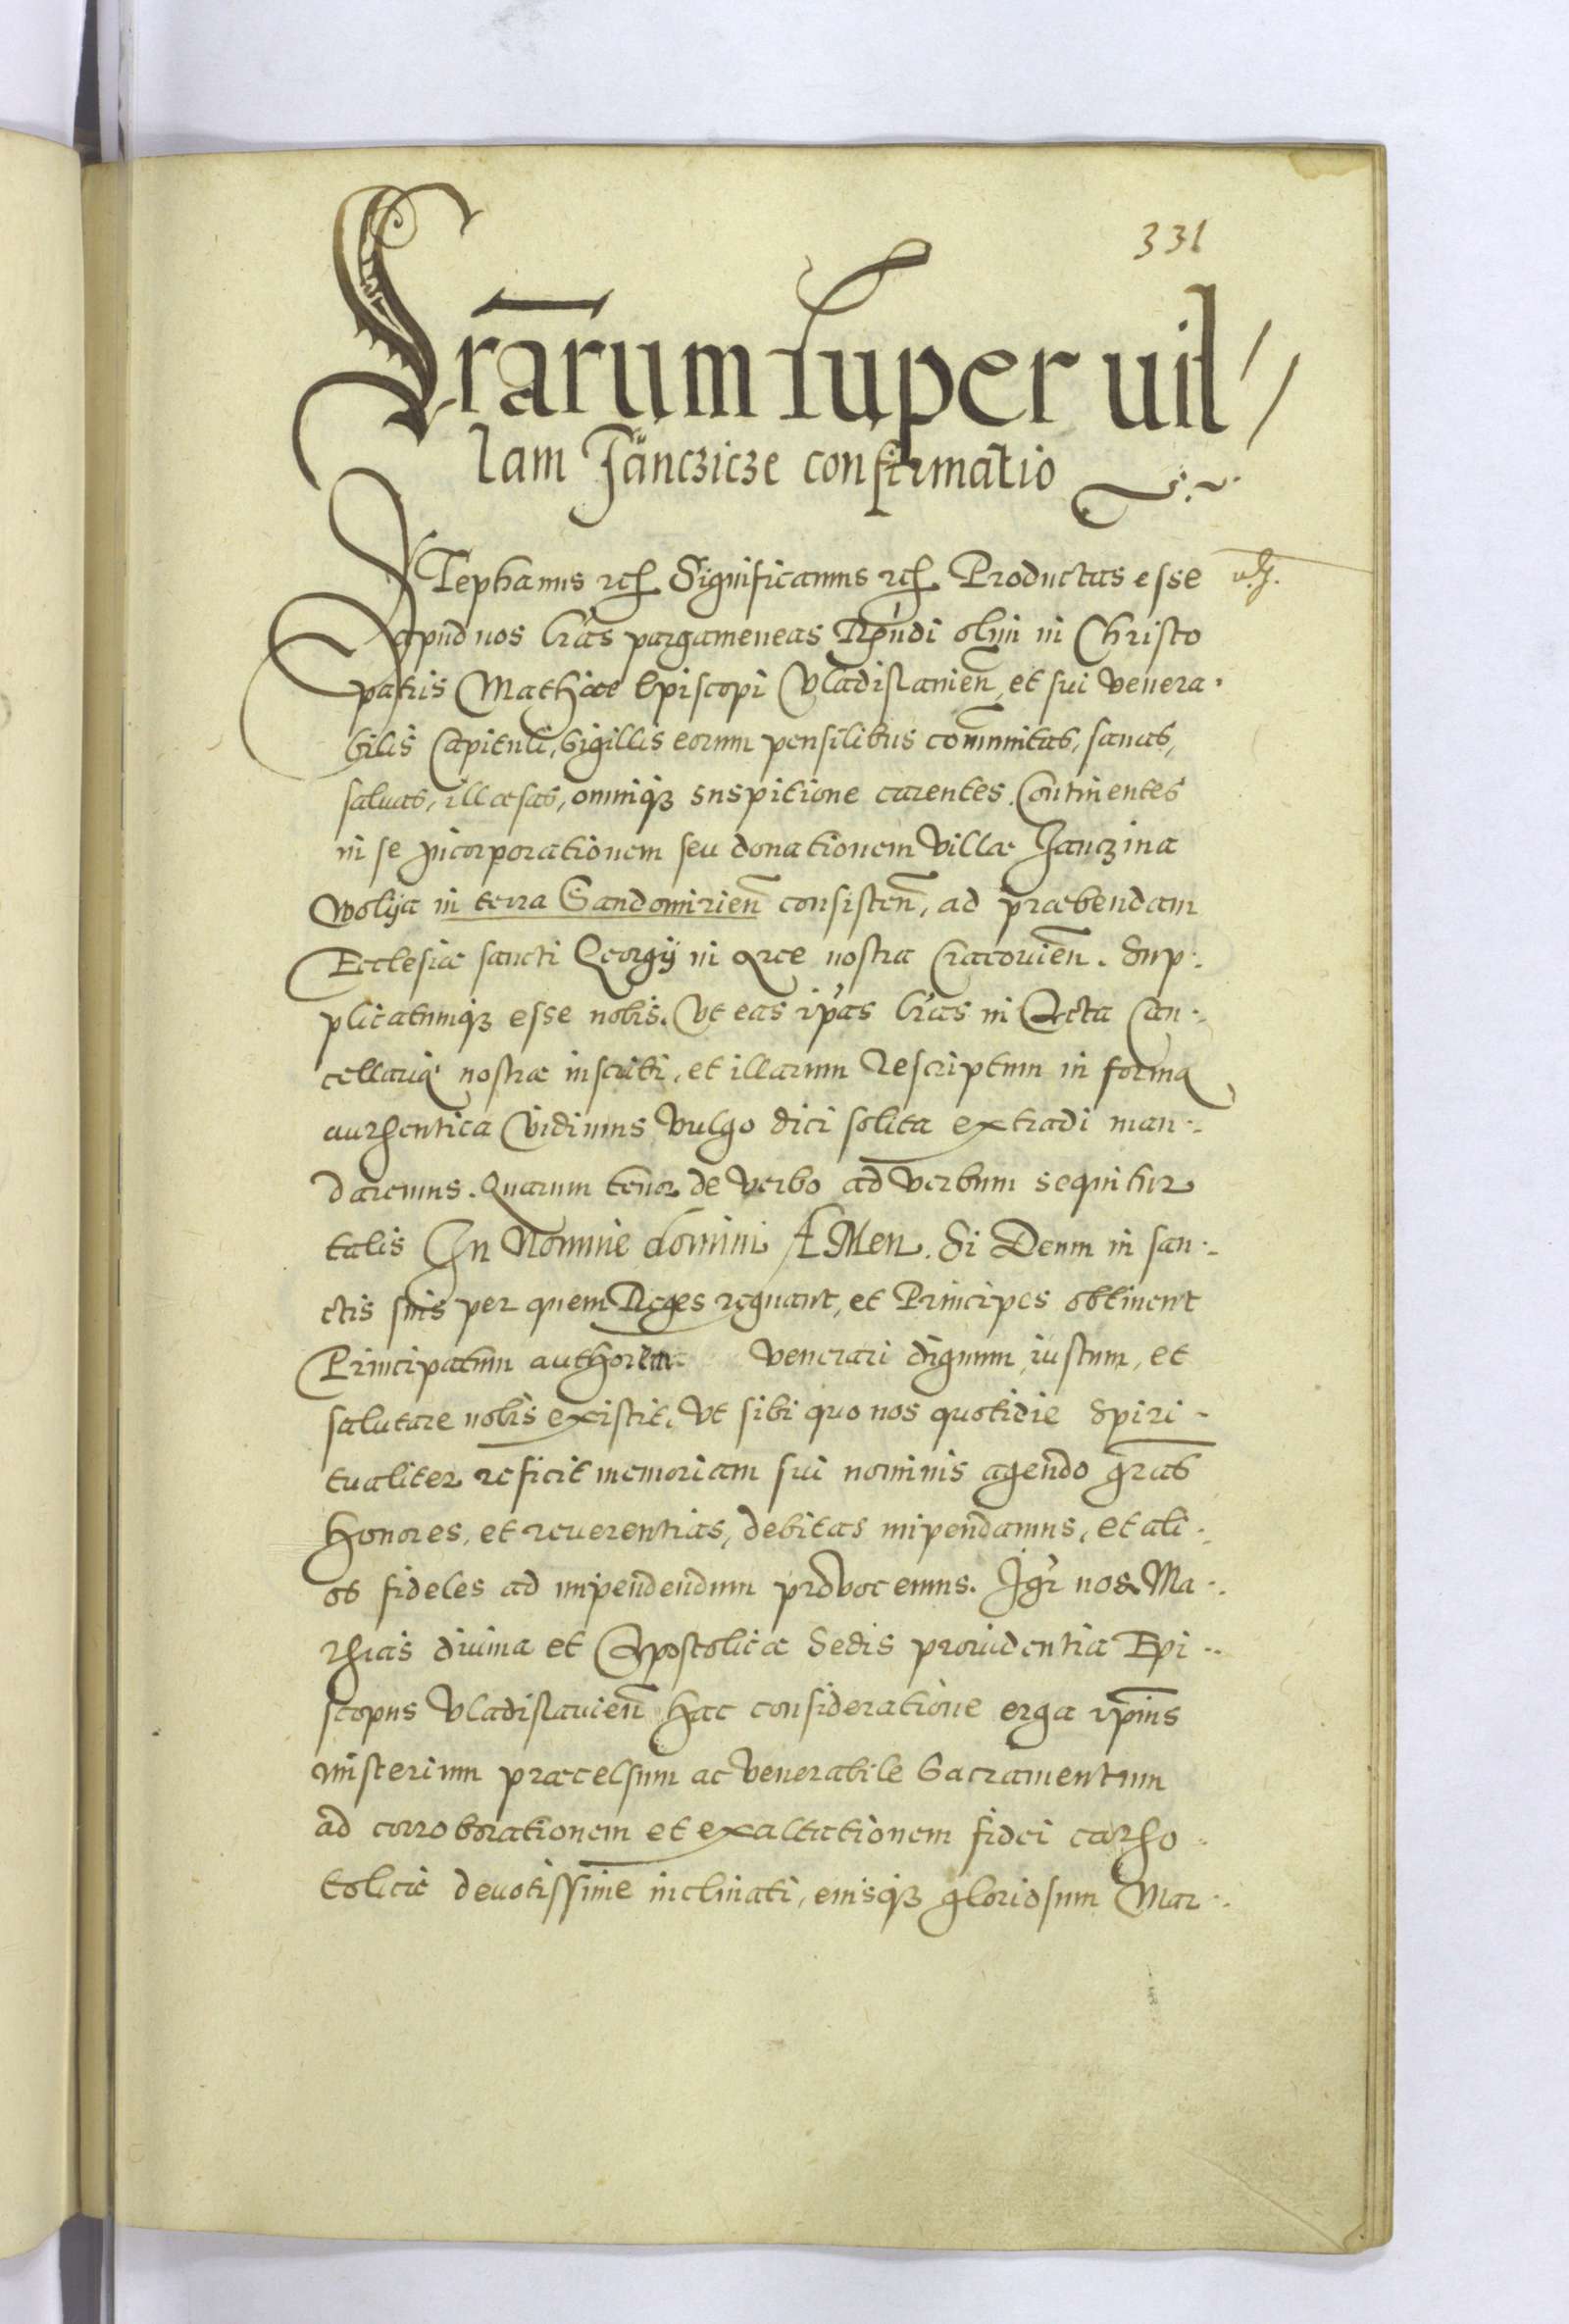 331
Lrarum super uil
lam Jánczicze confirmatio
STephanus etc. Significamus etc. Productas esse
apud nos lr̃as pargameneas Rṽndi olim in Christo
patris Mathiae Episcopi Vladislauien̄, et sui venera-
bilis Capituli, Sigillis eorum pensilibus com̄unitas, sanas,
saluas, illaesas, omniq₃ suspitione carentes. Continentes
in se Jncorporationem seu donationem Villae Janczina
Wolya in terra Sandomirien̄ consisten̄, ad praebendam
Ecclesiae sancti Georgij in Arce nostra Cracouien̄. Sup-
plicatumq₃ esse nobis. Vt eas ip̃as lr̃as in Acta Can-
cellariae nostrae inscribi, et illarum Rescriptum in forma
authentica Vidimus vulgo dici solita extradi man-
daremus. Quarum tenor de verbo ad verbum sequitur
talis Jn Nomine domini AMen. Si Deum in san-
ctis suis per quem Reges regnant, et Principes obtinent
Principatum authorem venerari dignum iustum, et
salutare nobis existit, Vt sibi quo nos quotidie Spiri-
tualiter reficit memoriam sui nominis agendo gr̃as
Honores, et reuerentias, debitas impendamus, et ali-
os fideles ad impendendum prouocemus. Jgr̃ nos Ma-
thias diuina et Apostolicae Sedis prouidentia Epi-
scopus Vladislauien̄ hac consideratione erga ip̄ius
misterium praecelsum ac venerabile Sacramentum
ad corroborationem et exaltationem fidei catho-
tolicae deuotissime inclinati, eiusq₃ gloriosum Mar-